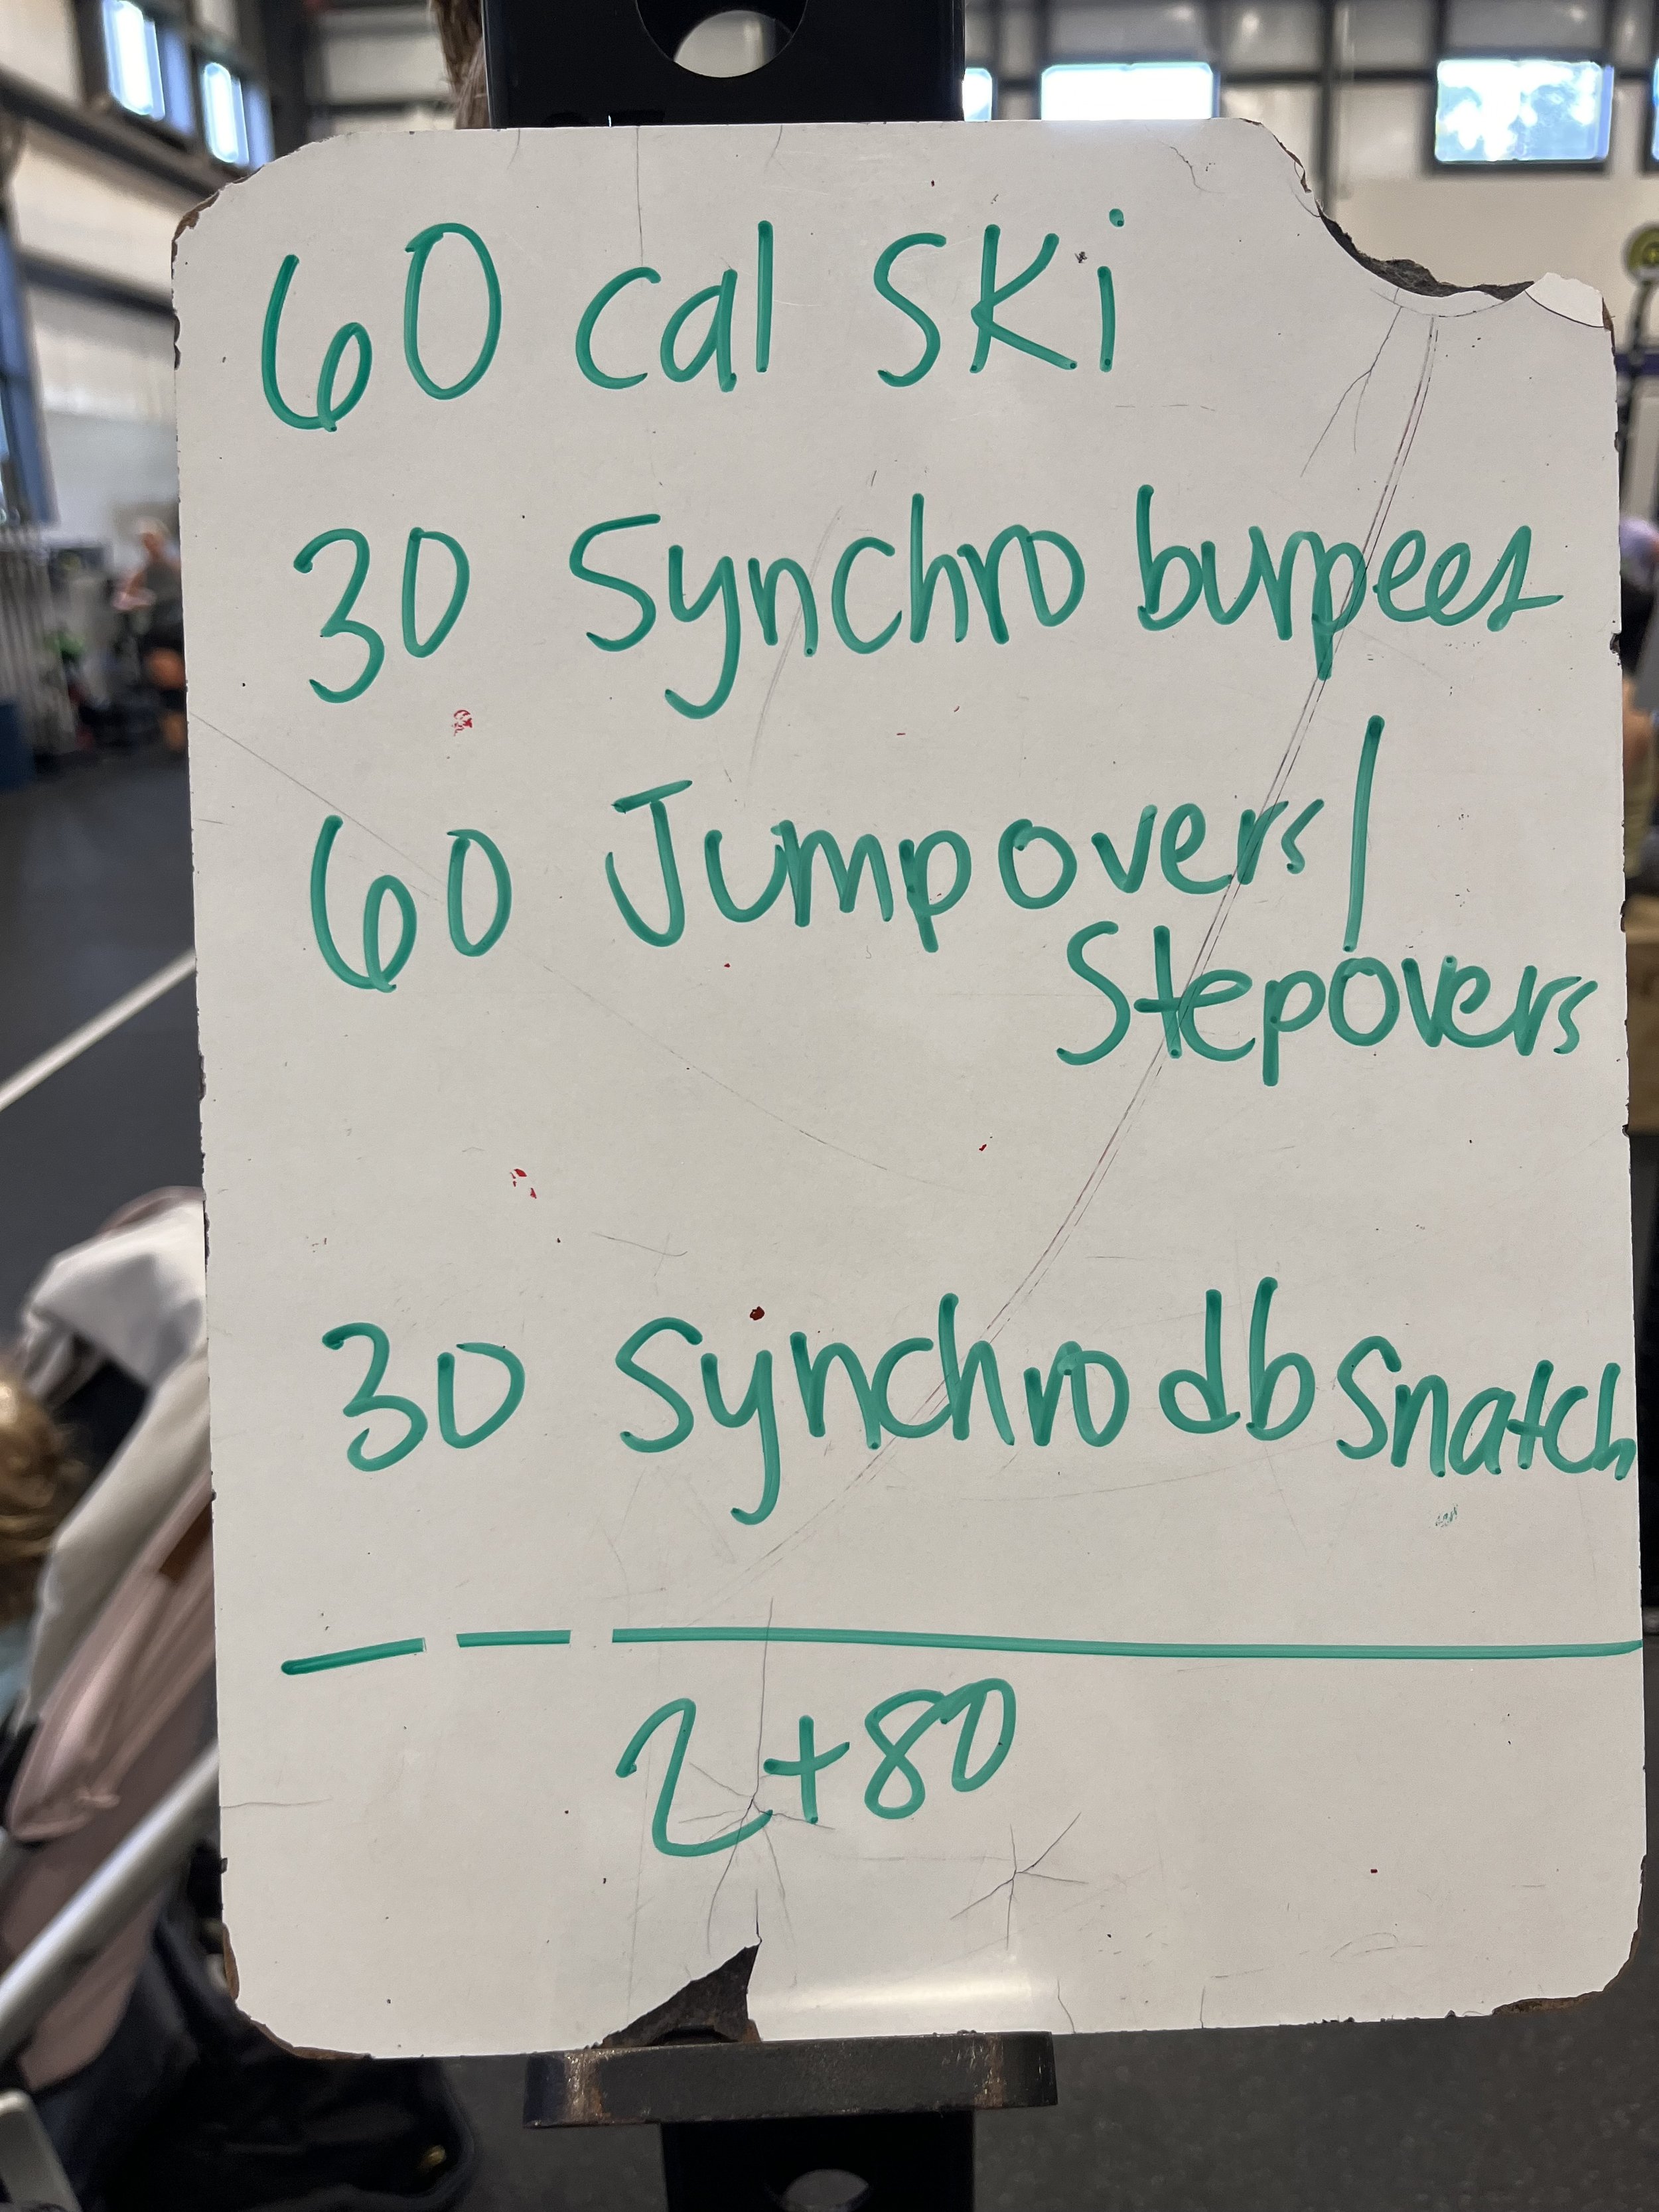 60 cal SKi
30 Synchro burpees
60 Jump overs/
Stepovers
30 Synchro db Snatch
2+80